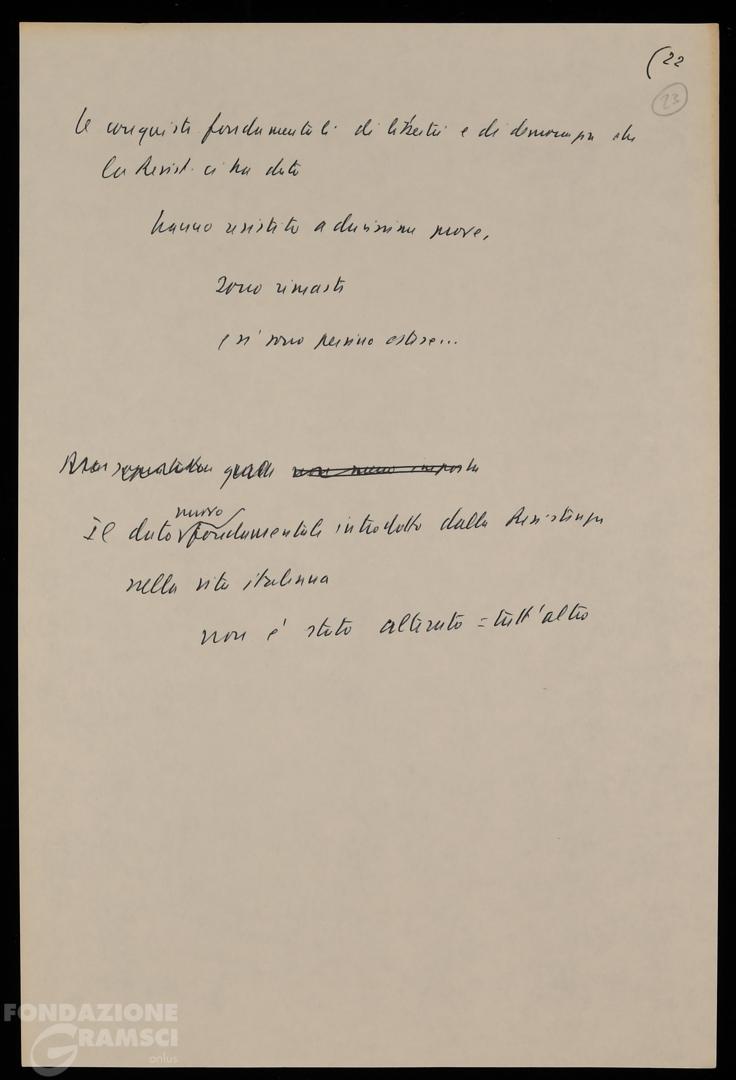 (22
23
le conquiste fondamentali di libertà e di democrazia che
la Resist. ci ha dato
hanno resistito a durissime prove,
sono rimaste
e si sono persino estese...
nuovo
Il dato fondamentale introdotto dalla Resistenza
nella vita italiana
non è stato alterato = tutt'altro
FONDAZIONE
GRAMSCI
onlus